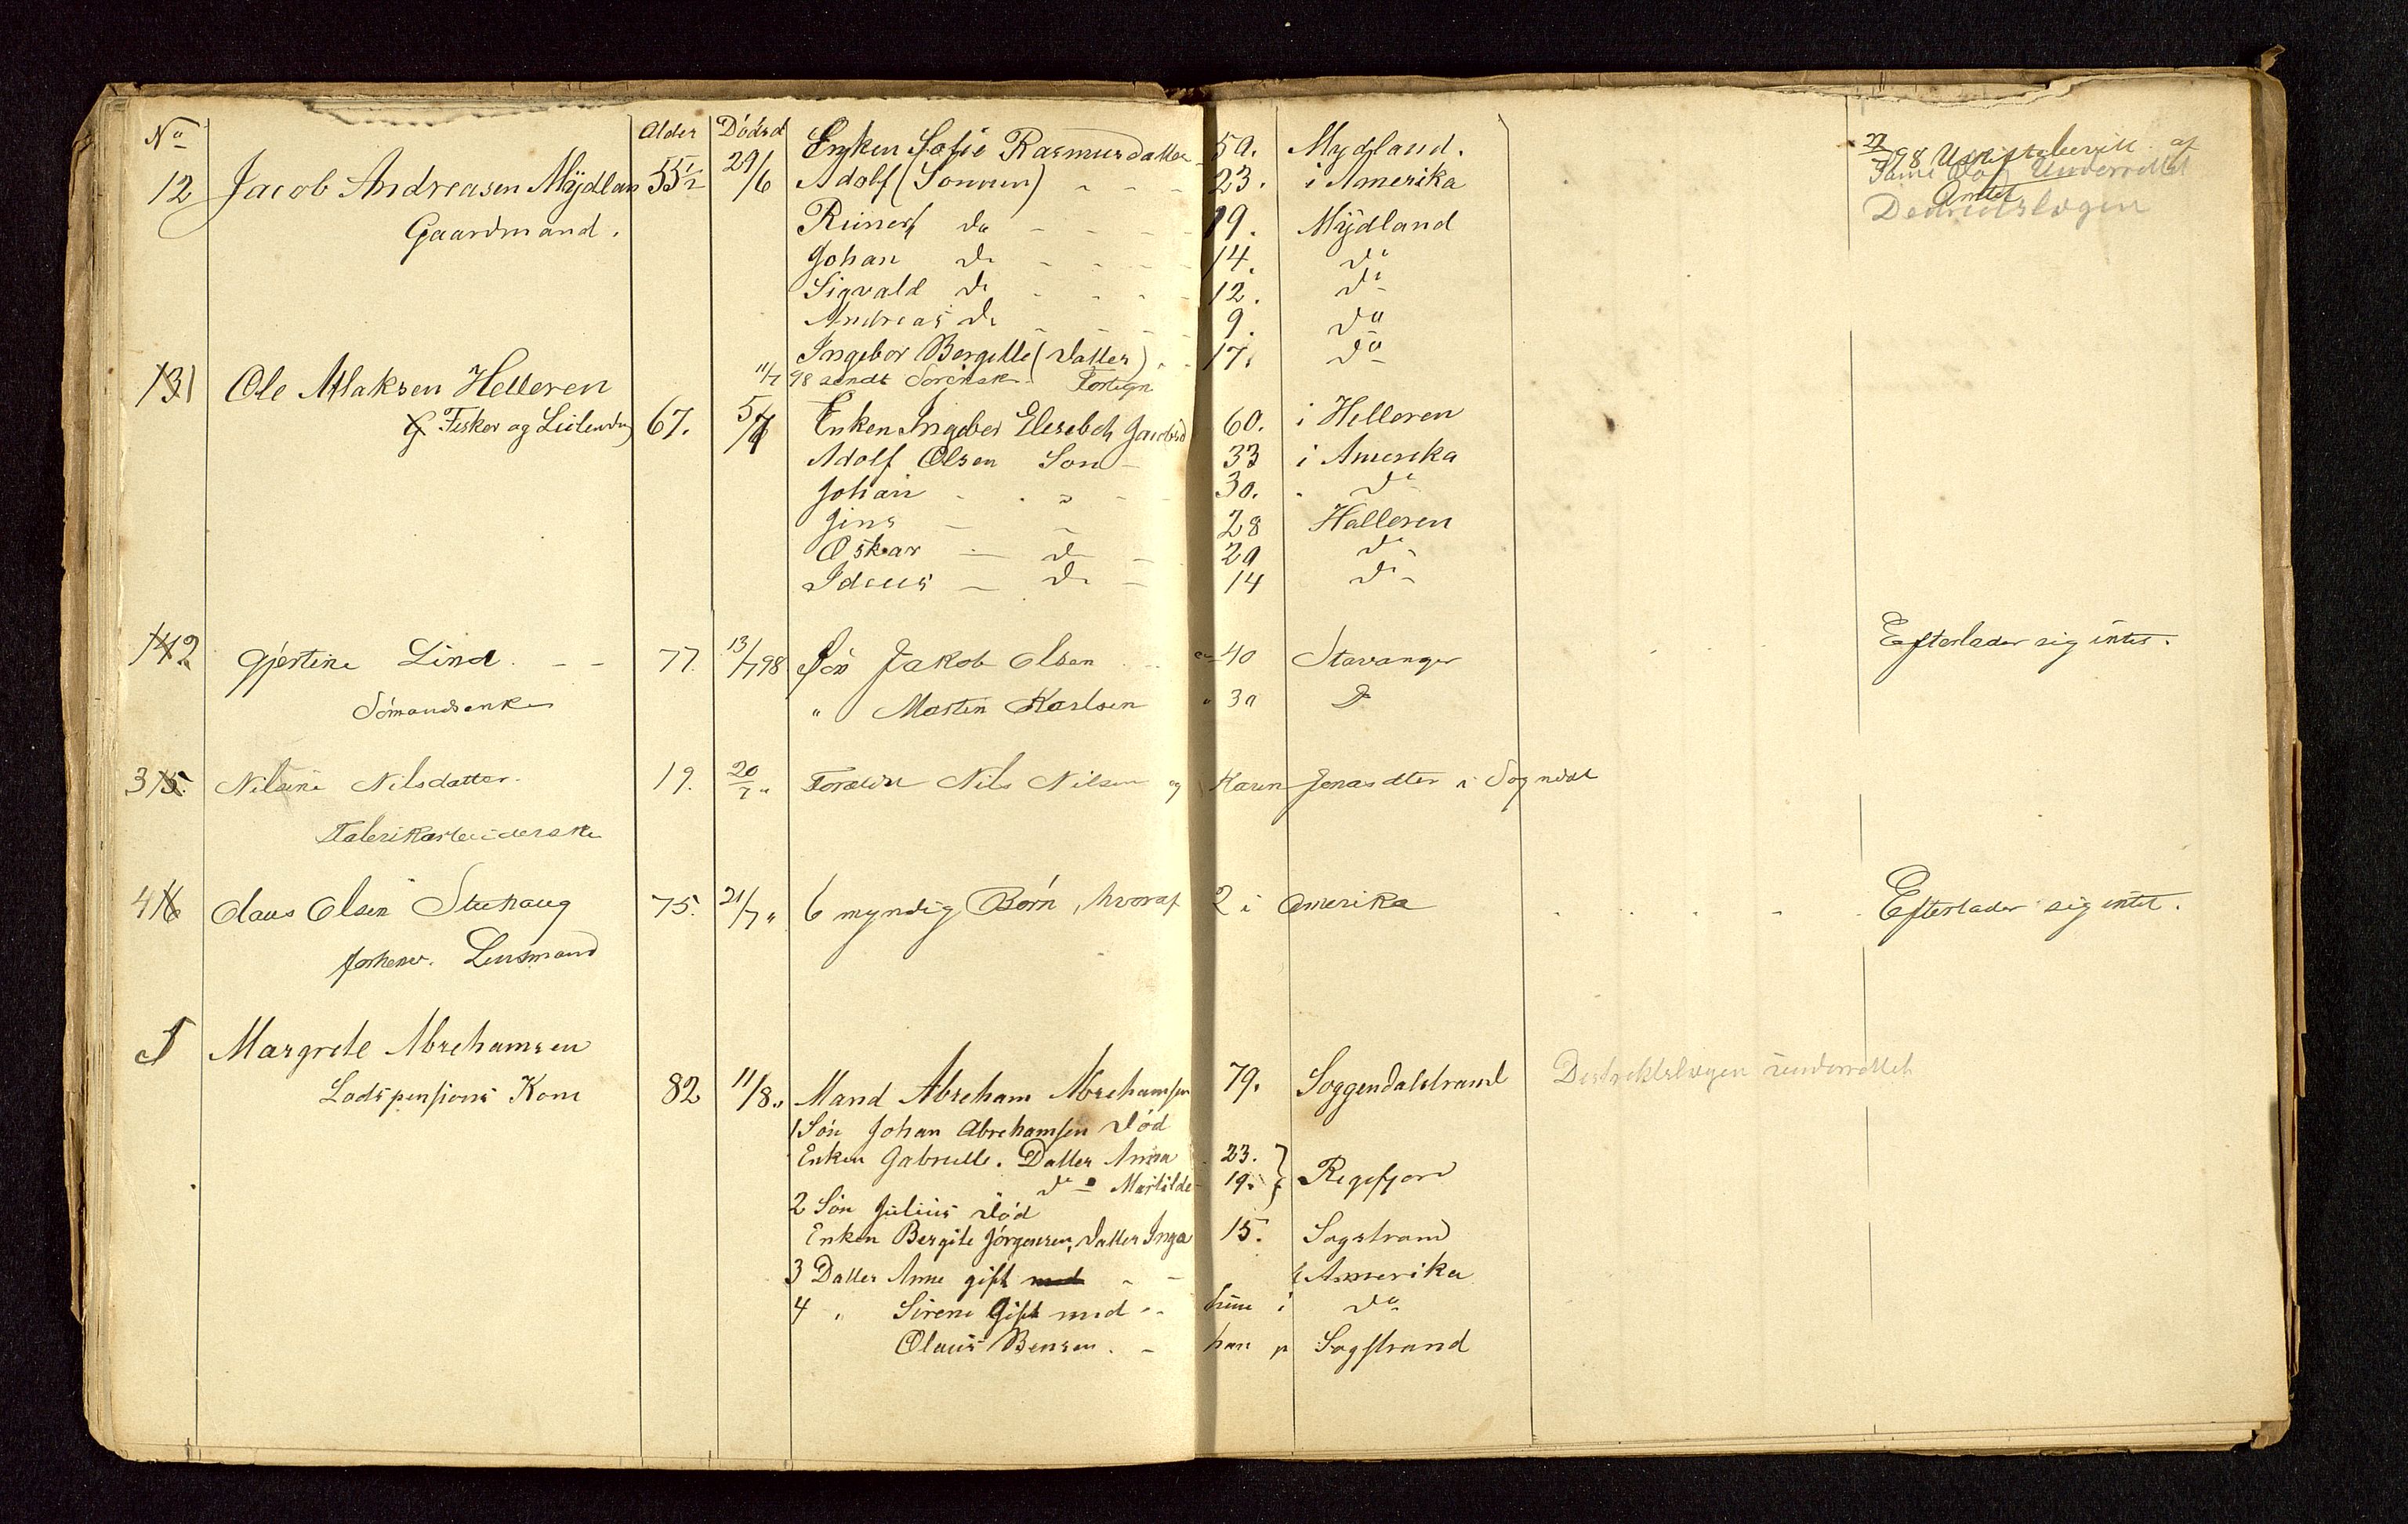 No Alder Dödsd
12 Jacob Andreasen Mydlan 55 1/2 29/6 Enken Sofie Rasmusdatter 50. Mydland.
Gaardmand.
Adolf (Sönnen) - - - 23. i Amerika
Reinert do - - - 19. Mydland
Johan do - - - 14. do
Sigvald do - - - 12. do
Andreas do - - - 9. do
Ingebor Bergitte (Datter) - - 17. do
11/7 98 sendt Sorensk. Fortegn
27/7 98 Uskiftebevill. af
Amtet
Samme Dag Underrettet
Distriktslægen
131 Ole Atlaksen Helleren
Fisker og Leilendng 67. 5/7 Enken Ingebor Elesebeth Jacobsd 60. i Helleren
Adolf Olsen Sön - 33 i Amerika
Johan - - - 30. - do
Jens - - 28 Helleren
Oskar - do - 20 do
Ideus - do - 14 do
142 Gjertine Lind. - - 77. 13/7 98 Sön Jakob Olsen - - ca 40 Stavanger Efterlader sig intet.
Sömandsenke " Martin Karlsen " 30 do
315. Nilsine Nilsdatter. 19. 20/7 " Forældre Nils Nilsen og Karen Jonasdtter i Sogndal
Fabrikarbeiderske
416 Claus Olsen Stuhaug 75. 21/7 " 6 myndig Börn, hvoraf 2 i Amerika - - - - Efterlader sig intet.
forhenv. Lensmand
5 Margrete Abrehamsen
Lodspensions Kone 82 11/8 " Mand Abreham Abrehamsen 79. Soggendalstrand Destriktslægen underrettet
1 Sön Johan Abrehamsen död
Enken Gabrielle. Datter Anna 23. } Regefjord
do - Mathilde 19. }
2 Sön Julius död
Enken Bergite Jörgensen, Datter Inga 15. Sogstrand
3 Datter Anne gift med - - i Amerika
4 " Sirene Gift med - - hun i do
Olaus Bensen. - han p Sogstrand